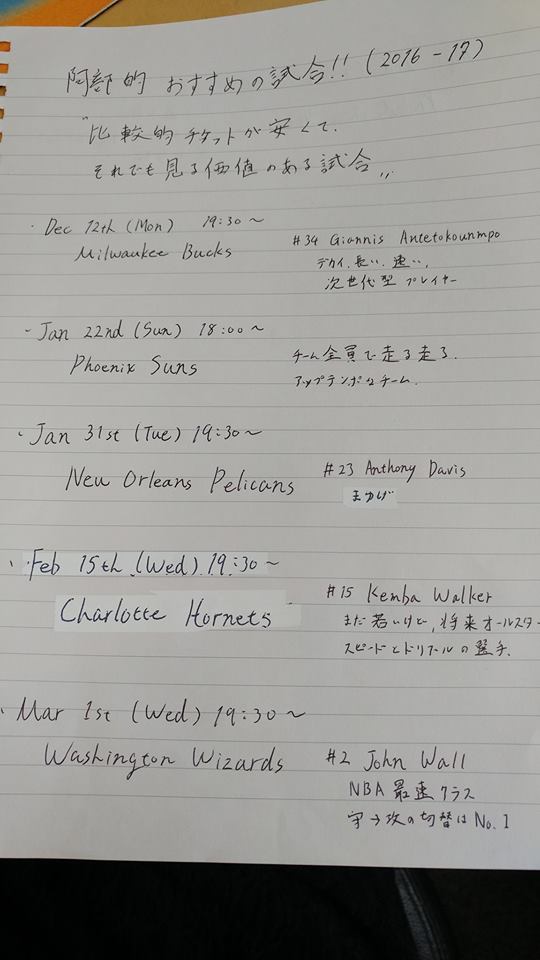 阿部的 おすすめの試合!! (2016-17)
"比較的チケットが安くて、
それでも見る価値のある試合,,
・Dec 12th (Mon) 19:30〜
Milwaukee Bucks
#34 Giannis Antetokounmpo
デカイ、長い、速い、
次世代型 プレイヤー
- Jan 22nd (Sun) 18:00〜
Phoenix Suns
チーム全員で走る走る.
アップテンポなチーム.
・Jan 31st (Tue) 19:30〜
New Orleans Pelicans
#23 Anthony Davis
まゆげ
・Feb 15th (Wed) 19:30〜
Charlotte Hornets
#15 Kemba Walker
まだ若いけど, 将来オールスター
スピードとドリブルの選手.
・Mar 1st (Wed) 19:30〜
Washington Wizards
#2 John Wall
NBA 最速クラス
守→攻の切替はNo.1